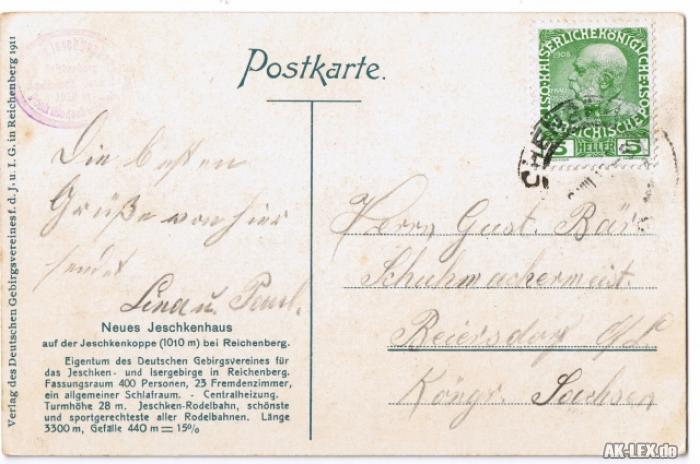 Verlag des Deutschen Gebirgsvereines f. d. J. u. I. G. in Reichenberg 1911
Postkarte.
1908
KAISERLICHEKÖNIGLICHE
5 HELLER 5
Die besten
Grüße von hier
sendet
Lina u. Paul.
Neues Jeschkenhaus
auf der Jeschkenkoppe (1010 m) bei Reichenberg.
Eigentum des Deutschen Gebirgsvereines für
das Jeschken- und Isergebirge in Reichenberg.
Fassungsraum 400 Personen, 23 Fremdenzimmer,
ein allgemeiner Schlafraum. - Centralheizung.
Turmhöhe 28 m. Jeschken-Rodelbahn, schönste
und sportgerechteste aller Rodelbahnen. Länge
3300 m, Gefälle 440 m = 15%
Herrn Gust.
Schuhmachermeist.
Beiersdorf
Köngr. Sachsen
AK-LEX.de